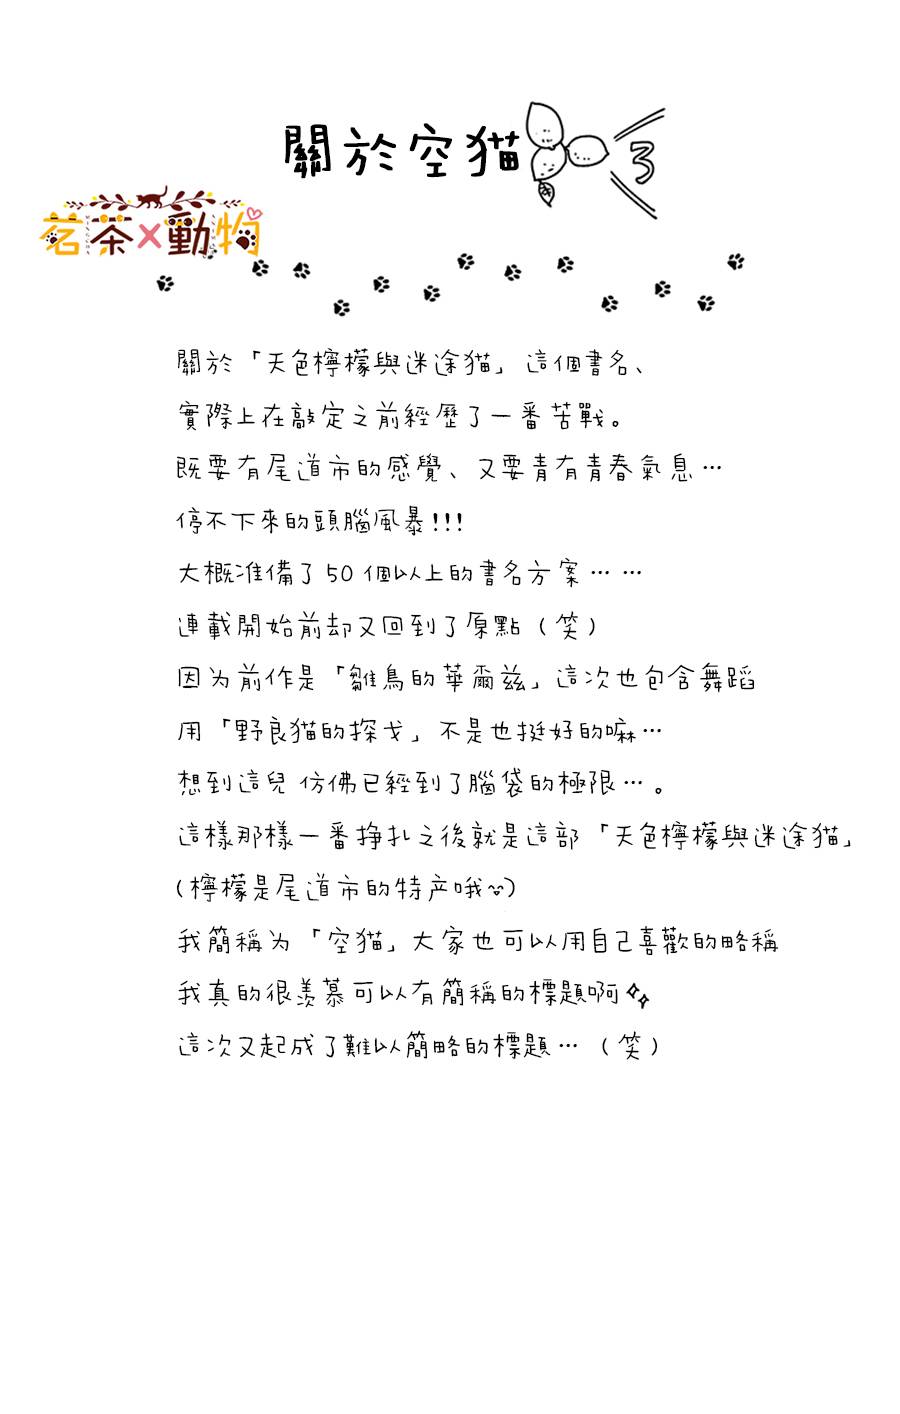 關於空猫 3
茗茶×動物
關於「天色檸檬與迷途猫」這個書名、
實際上在敲定之前經歷了一番苦戰。
既要有尾道市的感覺、又要青有青春氣息…
停不下來的頭腦風暴!!!
大概准備了50個以上的書名方案……
連載開始前却又回到了原點(笑)
因为前作是「雛鳥的華爾兹」這次也包含舞蹈
用「野良猫的探戈」不是也挺好的嘛…
想到這兒 仿佛已經到了腦袋的極限…。
這樣那樣一番挣扎之後就是這部「天色檸檬與迷途猫」
(檸檬是尾道市的特产哦~)
我簡稱为「空猫」大家也可以用自己喜歡的略稱
我真的很羡慕可以有簡稱的標題啊
這次又起成了難以簡略的標題…(笑)